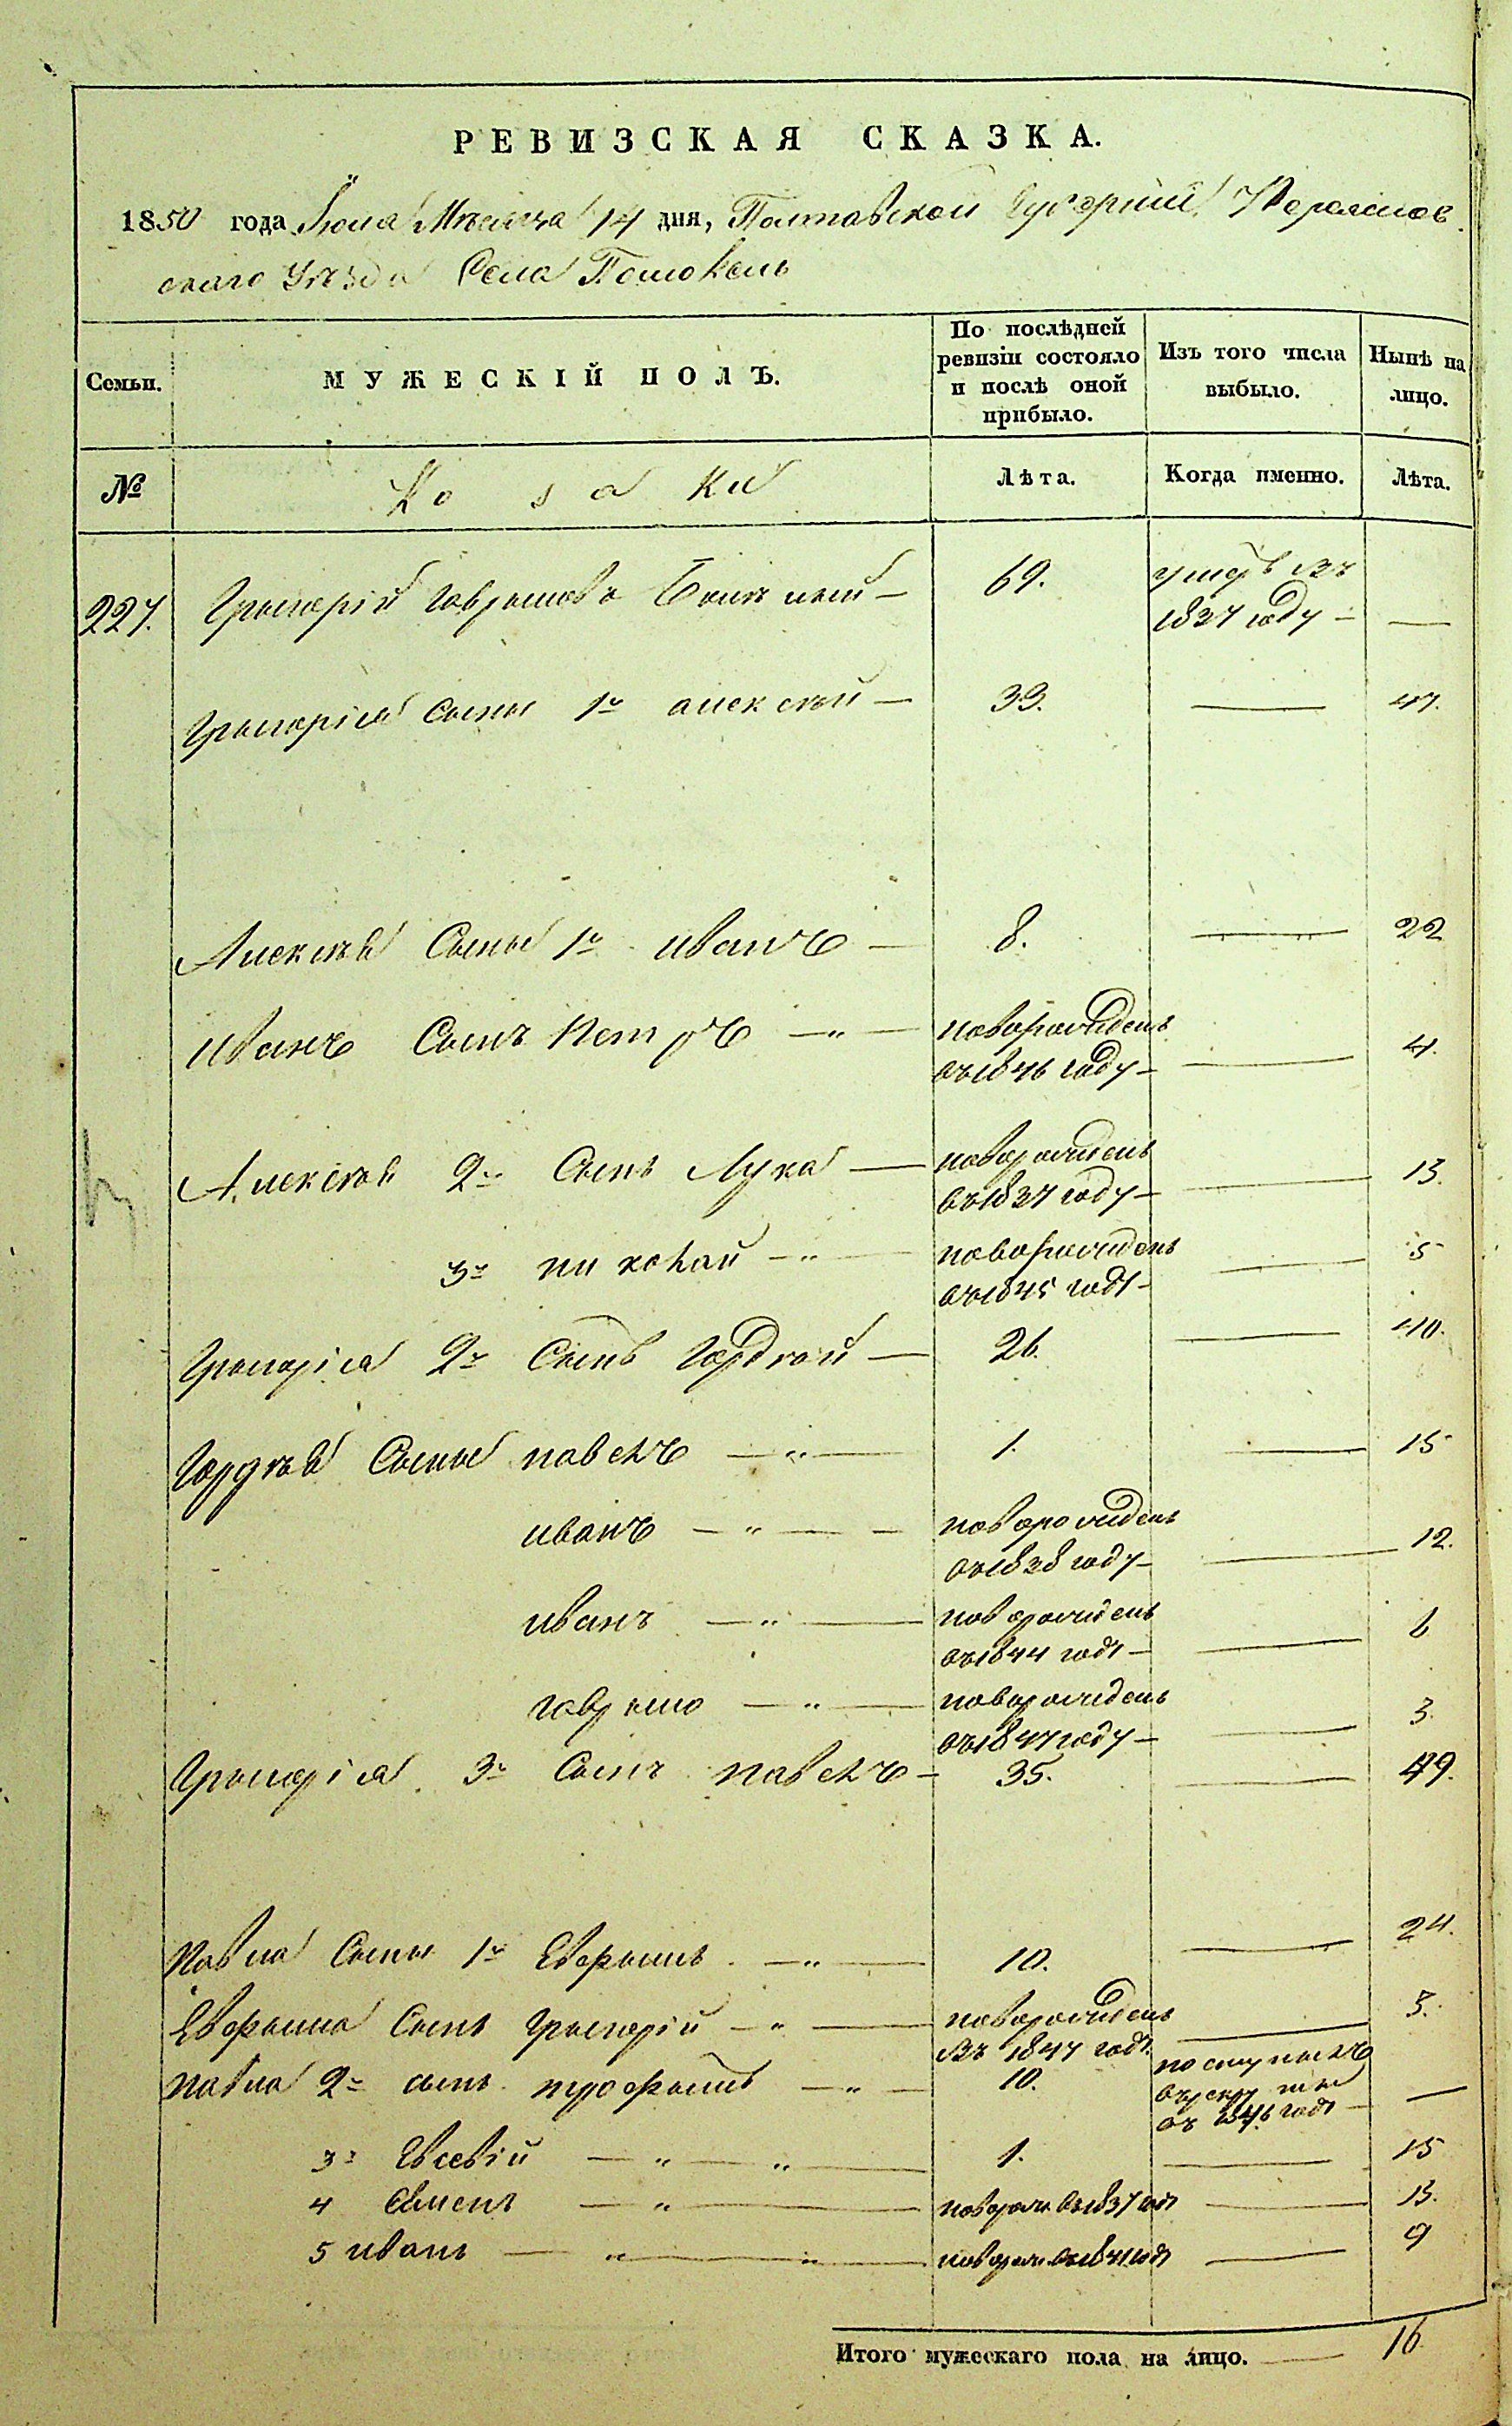 РЕВИЗСКАЯ СКАЗКА.
1850 года Мѣсяца 14 дня, Полтавской Губерніи,
скаго Уѣзда Села
Семьи. МУЖЕСКІЙ ПОЛЪ. По послѣдней ревизіи состояло и послѣ оной прибыло. Изъ того числа выбыло. Нынѣ на лицо.
№ Козаки Лѣта. Когда именно. Лѣта.
227. Григорій Гаврилова — 69. умеръ въ
1837 году — —
Григорія сыны 1й Алексѣй — 33. — 47.
Алексѣя Сыны 1й иванъ — 8. — 22
иванъ Сынъ Петръ — " — новорожденъ
въ 1846 году — — 4.
Алексѣя 2й Сынъ Лука — новорожденъ
въ 1837 году — — 13.
3й николай — " — новорожденъ
въ 1845 годѣ — — 5
Григорія 2й Сынъ Гордѣй — 26. — 40.
Гордѣя Сыны павелъ — " — 1. — 15
иванъ — " — — новорожденъ
въ 1838 году — — 12.
иванъ — " — новорожденъ
въ 1844 годѣ — — 6
гаврило — " — новорожденъ
въ 1847 году — — 3.
Григорія 3й Сынъ павелъ — 35. — 49.
Павла Сыны 1й Евфимъ — " — 10. — 24.
Евфима Сынъ Григорій — " — новорожденъ
въ 1847 годѣ — 3.
Павла 2й сынъ трофимъ — " — 10. поступилъ
въ рекруты
въ 1846 годѣ — —
3й Евсевій — " — " — 1. — 15
4 — " — новорожд въ 1837 годѣ — 13.
5 иванъ — " — " — новорожд въ 1841 годѣ — 9
Итого мужескаго пола на лицо. — 16